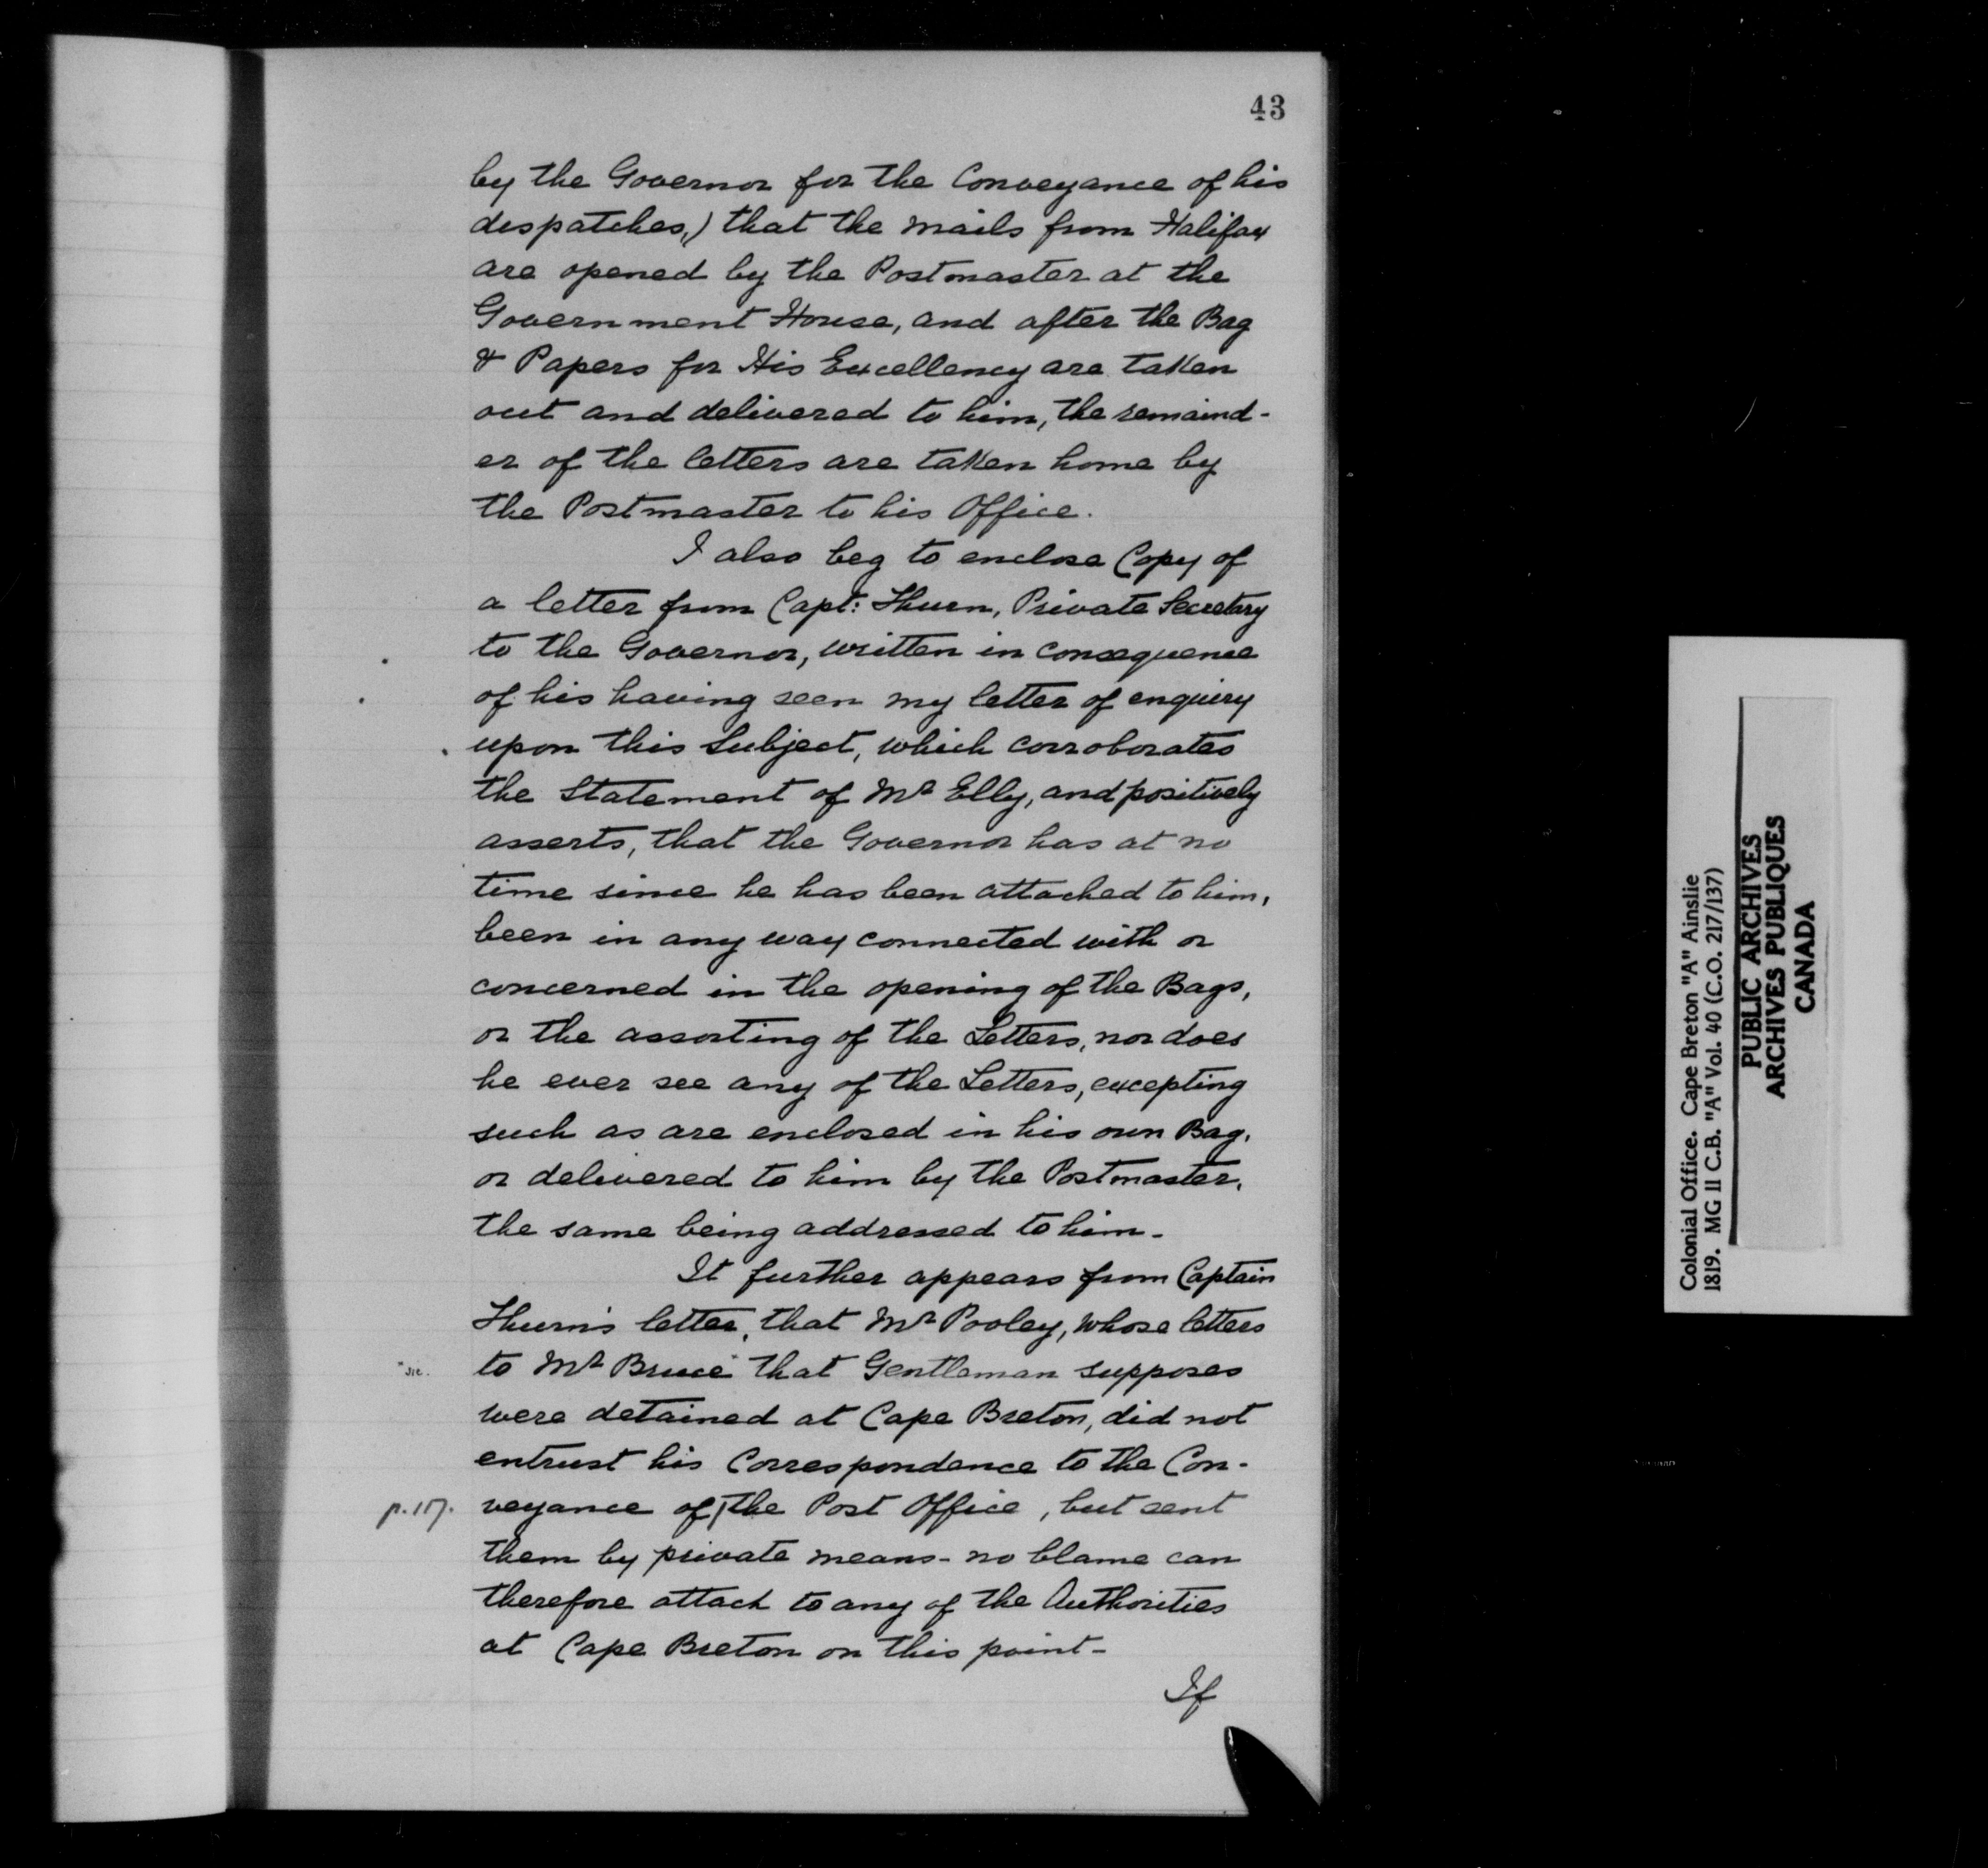 43
by the Governor for the Conveyance of his
despatches,) that the mails from Halifax
are opened by the Postmaster at the
Government House, and after the Bag
& Papers for His Excellency are taken
out and delivered to him, the remaind-
er of the letters are taken home by
the Postmaster to his Office.
I also beg to enclose Copy of
a letter from Capt: Thurn, Private Secretary
to the Governor, written in consequence
of his having seen my letter of enquiry
upon this Subject, which corroborates
the Statement of Mr Elly, and positively
asserts, that the Governor has at no
time since he has been attached to him,
been in any way connected with or
concerned in the opening of the Bags,
or the assorting of the Letters, nor does
he ever see any of the Letters, excepting
such as are enclosed in his own Bag,
or delivered to him by the Postmaster,
the same being addressed to him.
It further appears from Captain
Thurn's letter, that Mr Pooley, whose letters
"sic. to Mr Bruce" that Gentleman supposes
were detained at Cape Breton, did not
entrust his Correspondence to the Con-
p. 117. veyance of the Post Office, but sent
them by private means - no blame can
therefore attach to any of the Authorities
at Cape Breton on this point -
If
Colonial Office. Cape Breton "A" Ainslie
1819. MG 11 C.B. "A" Vol. 40 (C.O. 217/137)
PUBLIC ARCHIVES
ARCHIVES PUBLIQUES
CANADA